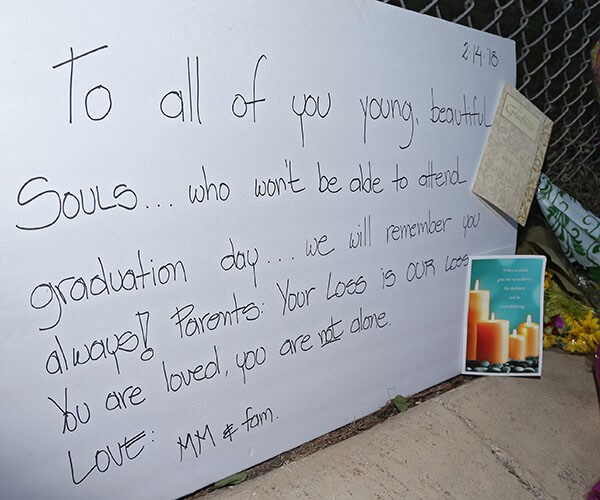 2·14·'18
To all of you young, beautiful
Souls... who won't be able to attend
graduation day... we will remember you
always! Parents: Your Loss is our Loss
You are loved, you are not alone.
Love: MM & fam.